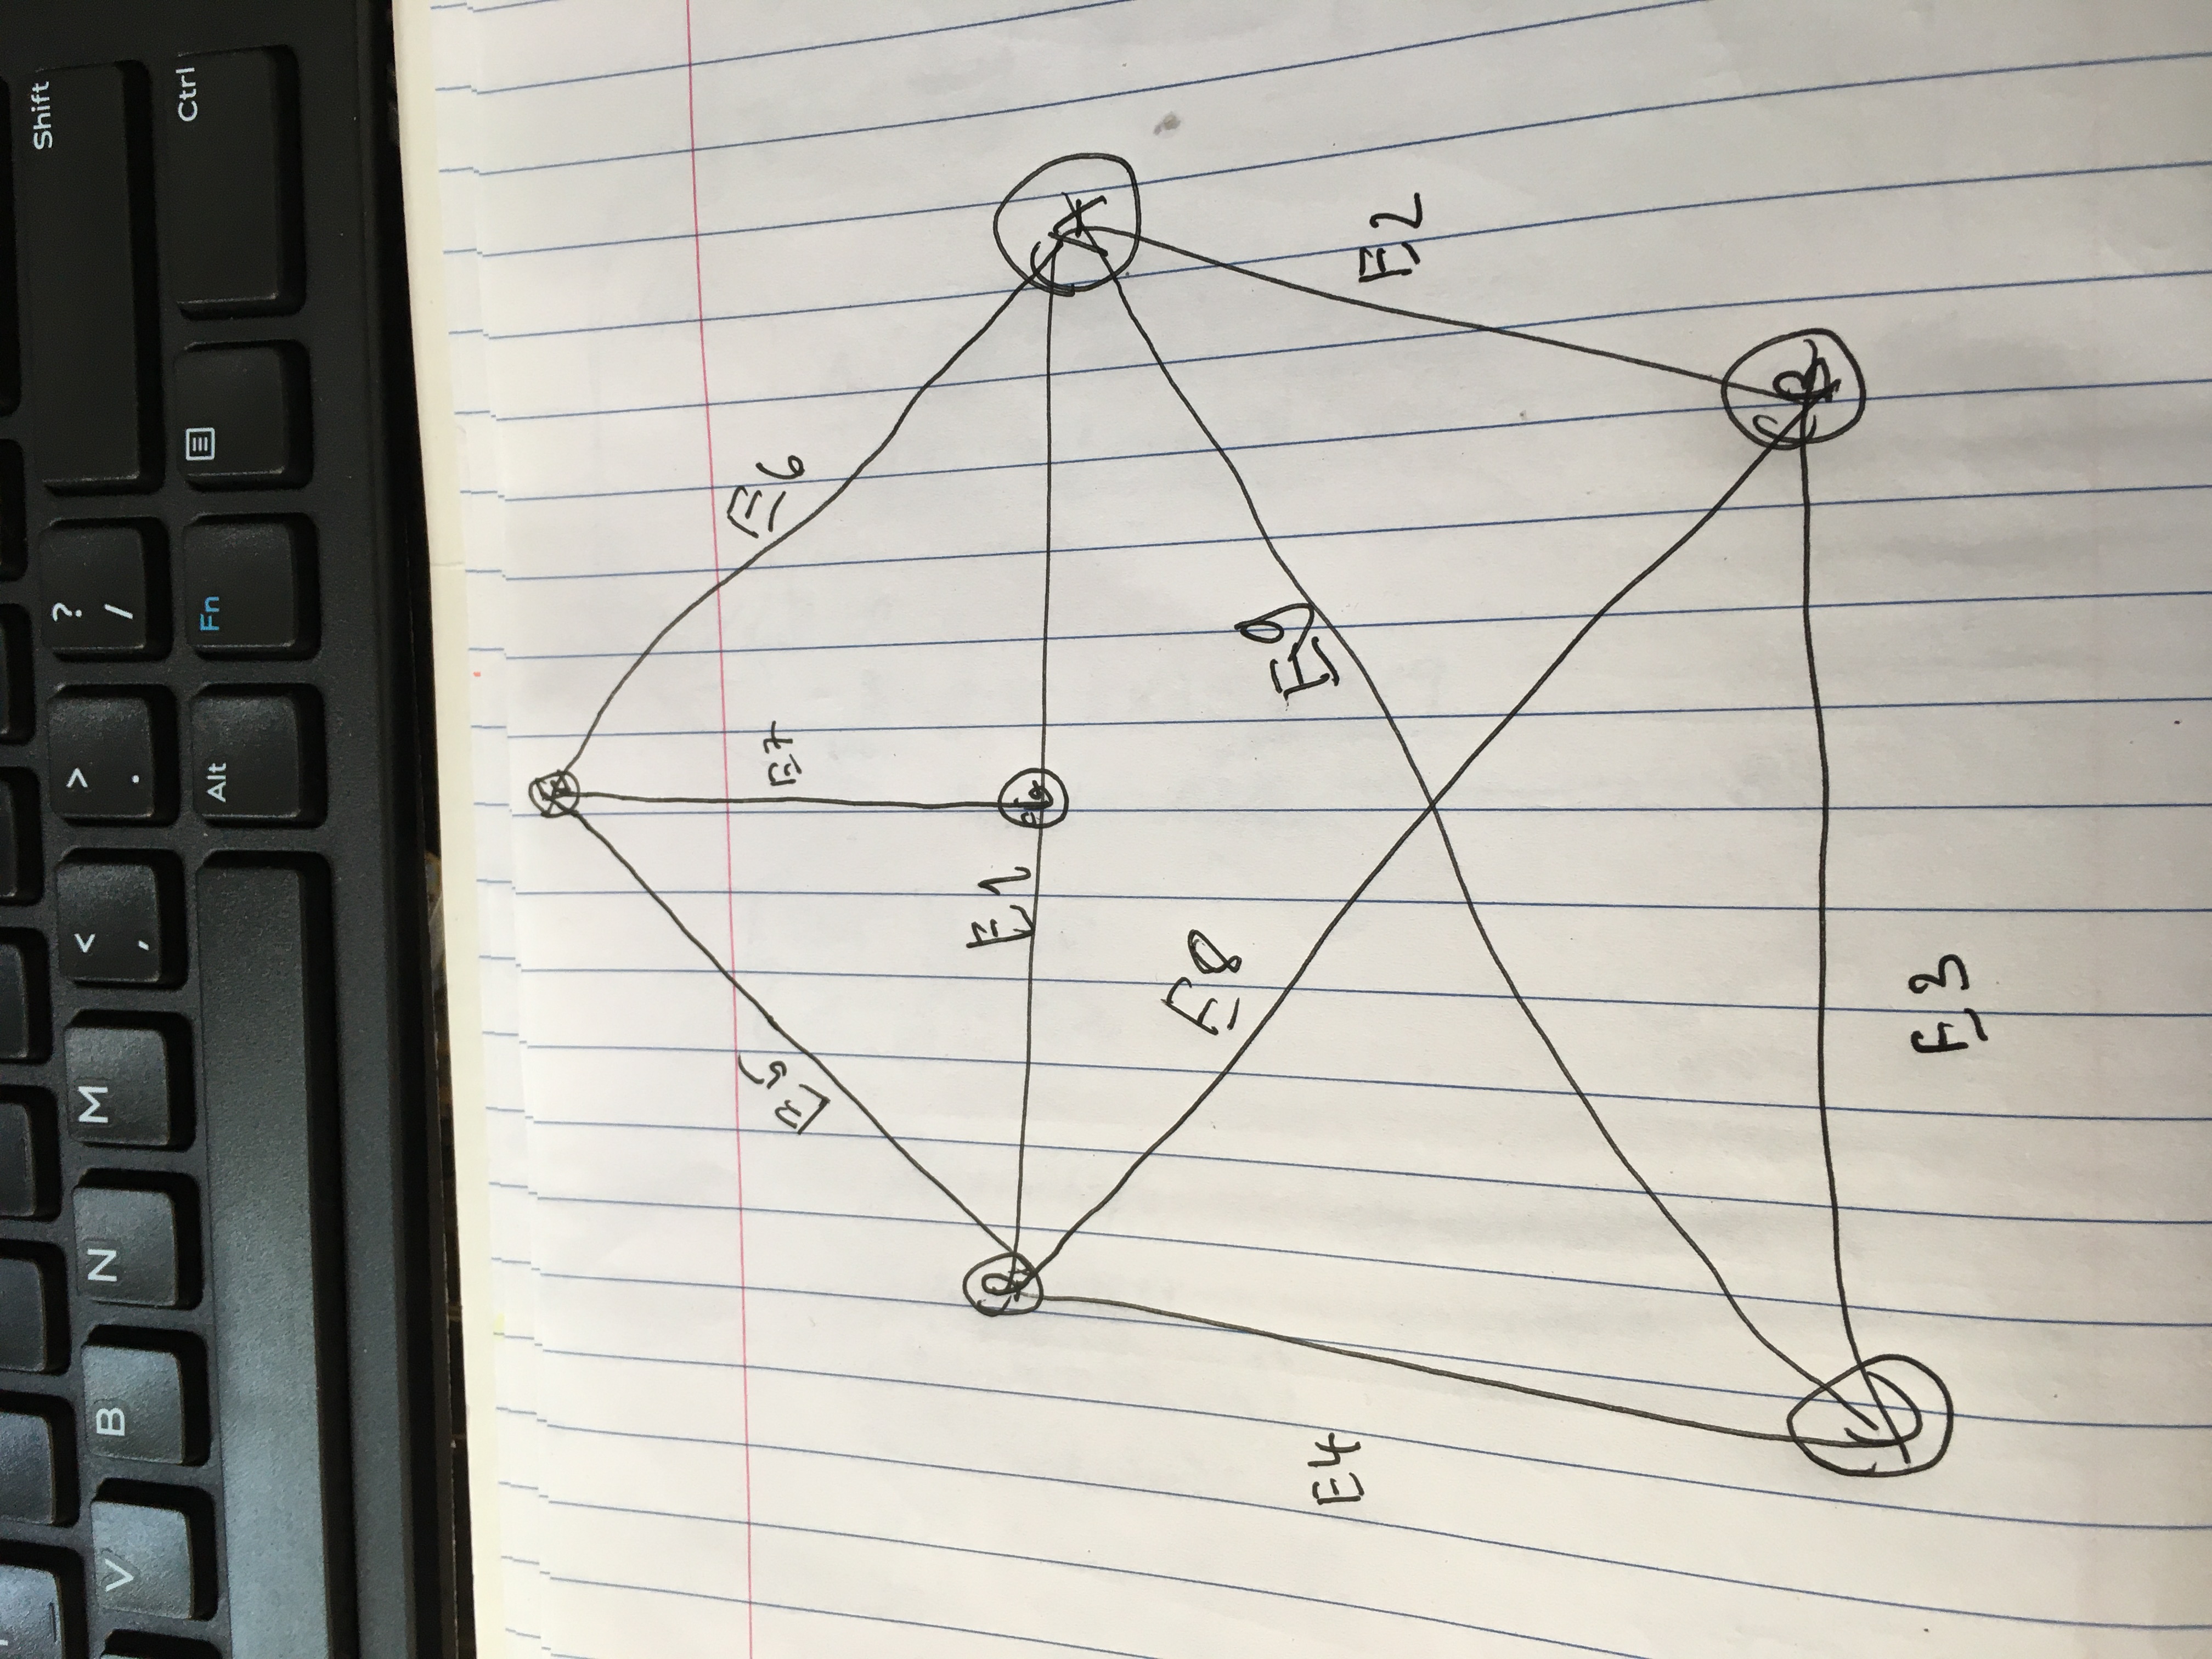 Shift
V B N M < , > . ? /
Alt Fn Ctrl
E5 E7 E6
E1
A
E8
E9
E4
E2
B
C
E3